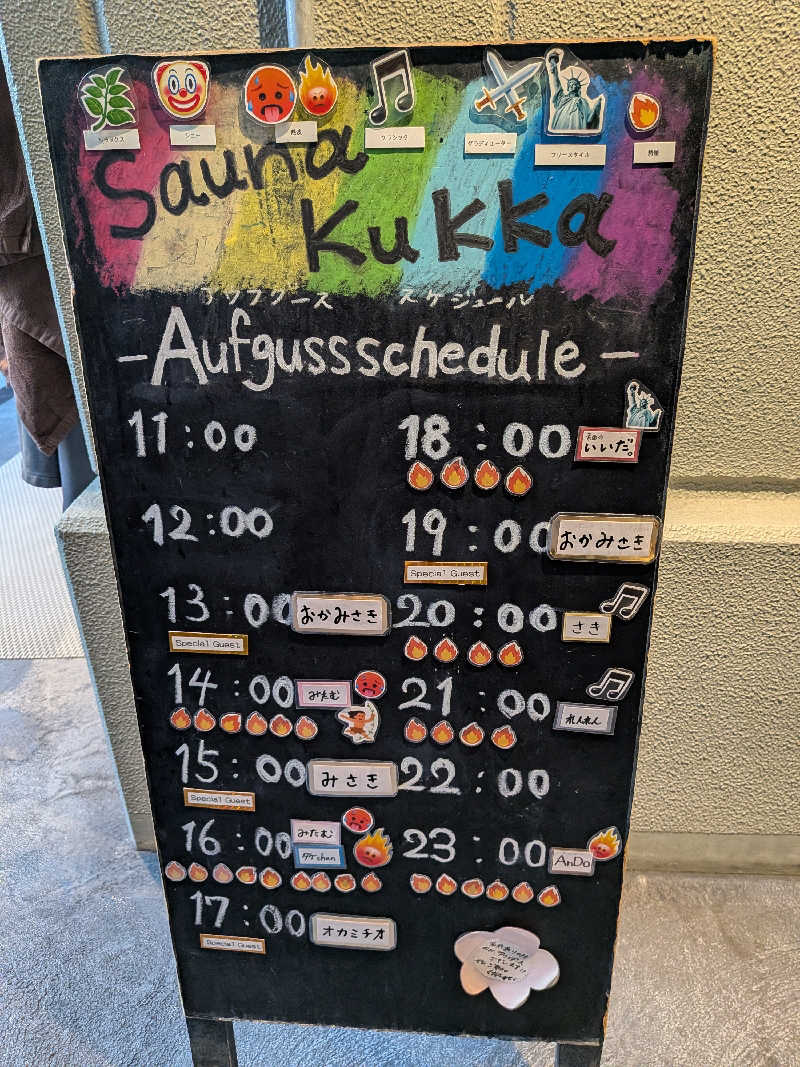 リラックス
ショー
熱波
クラシック
グラディエーター
フリースタイル
Sauna
Kukka
アウフグース スケジュール
-Aufgussschedule-
11:00
12:00
13:00 おかみさき
Special Guest
14:00 みたむ
15:00 みさき
Special Guest
16:00 みたむ
タケchan
17:00 オカミチオ
Special Guest
18:00 いいだ。
19:00 おかみさき
Special Guest
20:00 さき
21:00 れんれん
22:00
23:00 AnDo